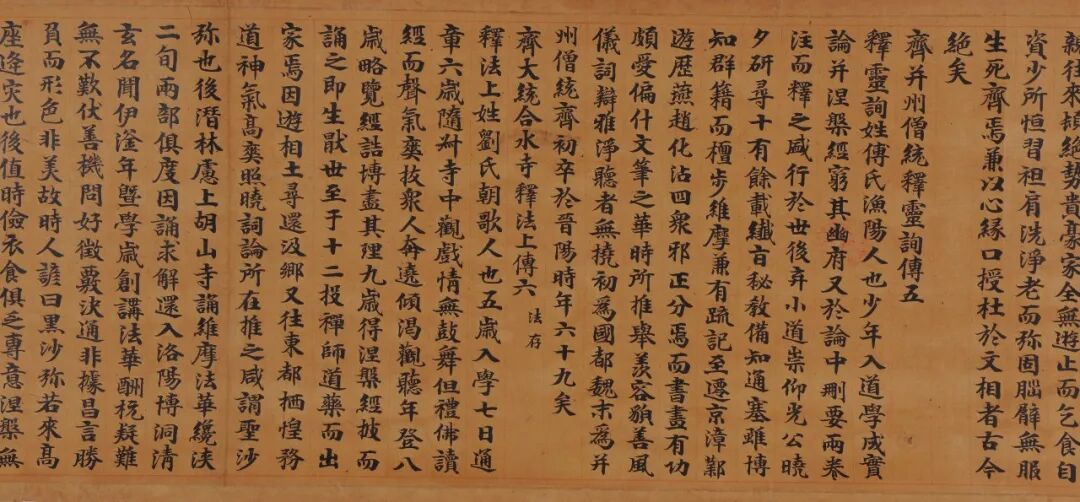 親往來頓絕勢貴豪家全無遊止而乞食自
資少所恒習袒肩洗淨老而弥固胐臂無服
生死齊焉兼以心緣口授杜於文相者古今
絕矣
齊并州僧統釋靈詢傳五
釋靈詢姓傅氏漁陽人也少年入道學成實
論并涅槃經窮其幽府又於論中刪要兩卷
注而釋之盛行於世後弃小道崇仰光公曉
夕研尋十有餘載纎旨秘教備知通塞雖博
知群籍而檀步維摩兼有疏記至遷京漳鄴
遊歷燕趙化沾四衆邪正分焉而書畫有功
頗愛偏什文筆之華時所推舉羨容皃善風
儀詞辯雅淨聽者無撓初爲國都魏末爲并
州僧統齊初卒於晉陽時年六十九矣
齊大統合水寺釋法上傳六 法存
釋法上姓劉氏朝歌人也五歲入學七日通
章六歲隨寺中觀戲情無鼓舞但禮佛讀
經而聲氣爽拔衆人奔遶傾渴觀聽年登八
歲略覽經誥博盡其理九歲得涅槃經披而
誦之即生猒世至于十二投禪師道藥而出
家焉因遊相土尋還汲鄉又往東都栖惶務
道神氣高爽照曉詞論所在推之咸謂聖沙
弥也後潛林慮上胡山寺誦維摩法華纔浹
二旬兩部俱度因誦求解還入洛陽博洞清
玄名聞伊滏年曁學歲創講法華酬抗疑難
無不歎伏善機問好徵覈決通非據昌言勝
負而形色非美故時人諺曰黑沙弥若來高
座逢灾也後值時儉衣食俱乏專意涅槃無